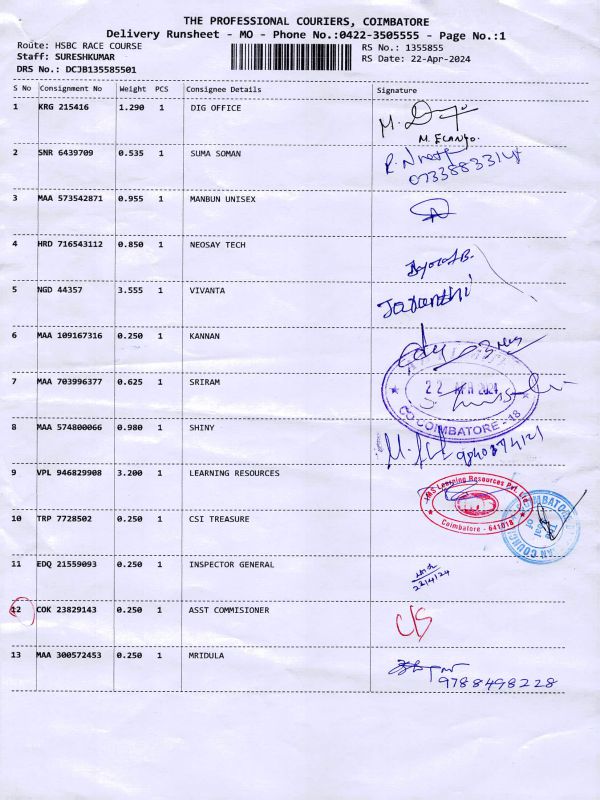 THE PROFESSIONAL COURIERS, COIMBATORE
Delivery Runsheet - MO - Phone No.:0422-3505555 - Page No.:1
Route: HSBC RACE COURSE
RS No.: 1355855
Staff: SURESHKUMAR
RS Date: 22-Apr-2024
DRS No.: DCJB135585501
S No Consignment No Weight PCS Consignee Details Signature
1 KRG 215416 1.290 1 DIG OFFICE
M. ELANGO.
2 SNR 6439709 0.535 1 SUMA SOMAN
07338833148
3 MAA 573542871 0.955 1 MANBUN UNISEX
4 HRD 716543112 0.850 1 NEOSAY TECH
5 NGD 44357 3.555 1 VIVANTA
6 MAA 109167316 0.250 1 KANNAN
7 MAA 703996377 0.625 1 SRIRAM
22 APR 2024
COIMBATORE - 18
8 MAA 574800066 0.980 1 SHINY
9 VPL 946829908 3.200 1 LEARNING RESOURCES
Learning Resources Pvt Ltd
Coimbatore - 641018
10 TRP 7728502 0.250 1 CSI TREASURE
11 EDQ 21559093 0.250 1 INSPECTOR GENERAL
22/4/24
12 COK 23829143 0.250 1 ASST COMMISIONER
C/S
13 MAA 300572453 0.250 1 MRIDULA
9788498228